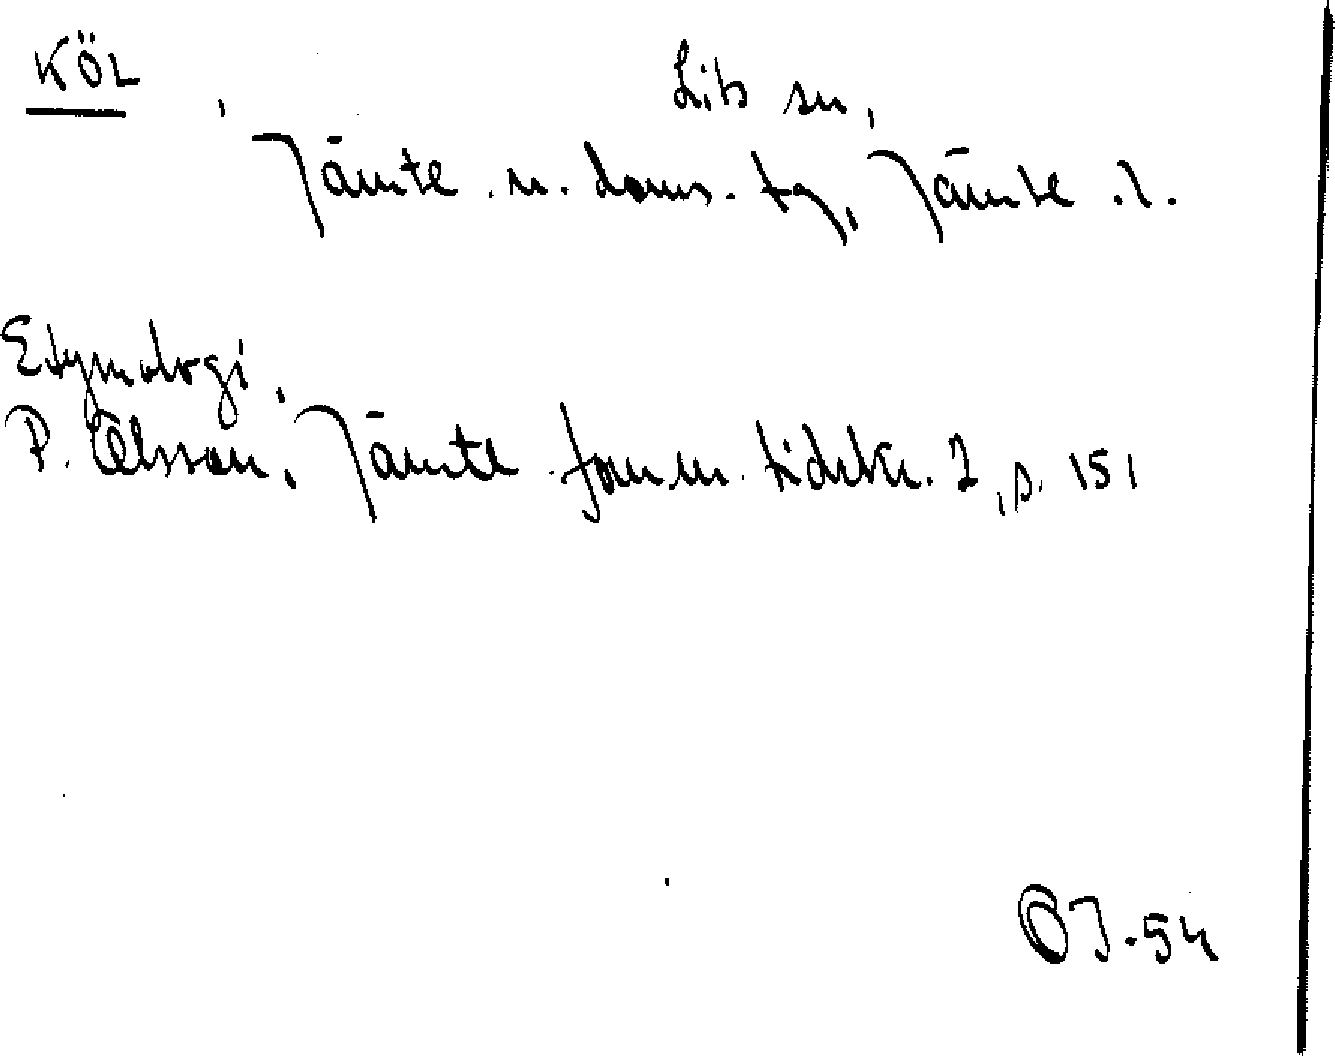 KÖL, Lits sn,
Jämte. n. doms. tg, Jämte. l.
Etymologi.
P. Olsson, Jämte. forn.m. tidskr. 2, s. 151
OJ.54